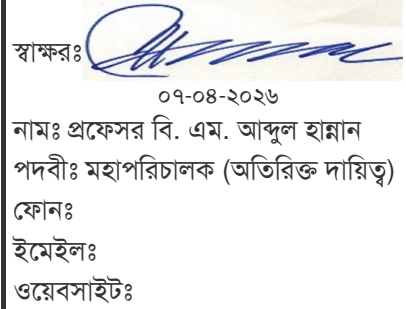 স্বাক্ষরঃ
০৭-০৪-২০২৬
নামঃ প্রফেসর বি. এম. আব্দুল হান্নান
পদবীঃ মহাপরিচালক (অতিরিক্ত দায়িত্ব)
ফোনঃ
ইমেইলঃ
ওয়েবসাইটঃ